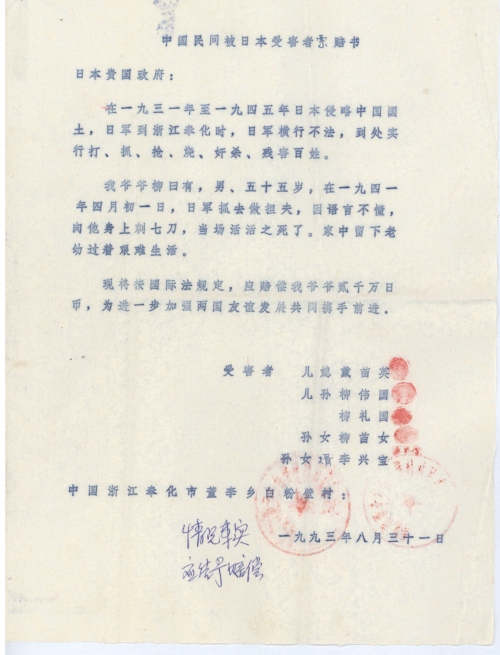 中国民间被日本受害者索赔书
日本贵国政府：
在一九三一年至一九四五年日本侵略中国国
土，日军到浙江奉化时，日军横行不法，到处实
行打、抓、抢、烧、奸杀、残害百姓。
我爷爷柳日有，男、五十五岁，在一九四一
年四月初一日，日军抓去做担夫，因语言不懂，
向他身上刺七刀，当场活活之死了。家中留下老
幼过着艰难生活。
现将按国际法规定，应赔偿我爷爷贰千万日
币，为进一步加强两国友谊发展共同携手前进。
受害者 儿媳戴苗英
儿孙柳伟国
柳礼国
孙女柳苗女
孙女婿李兴宝
中国浙江奉化市董李乡白粉堂村：
一九九三年八月三十一日
情况事实
应给予赔偿